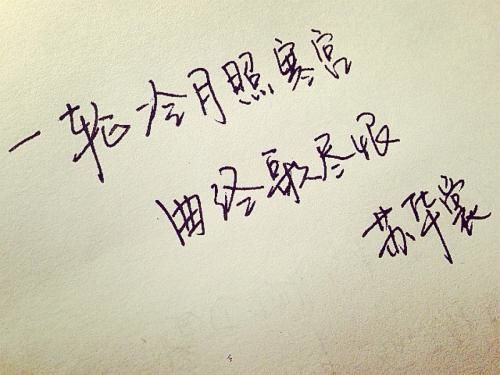 一轮冷月照寒宫
曲终歌尽恨
苏华裳